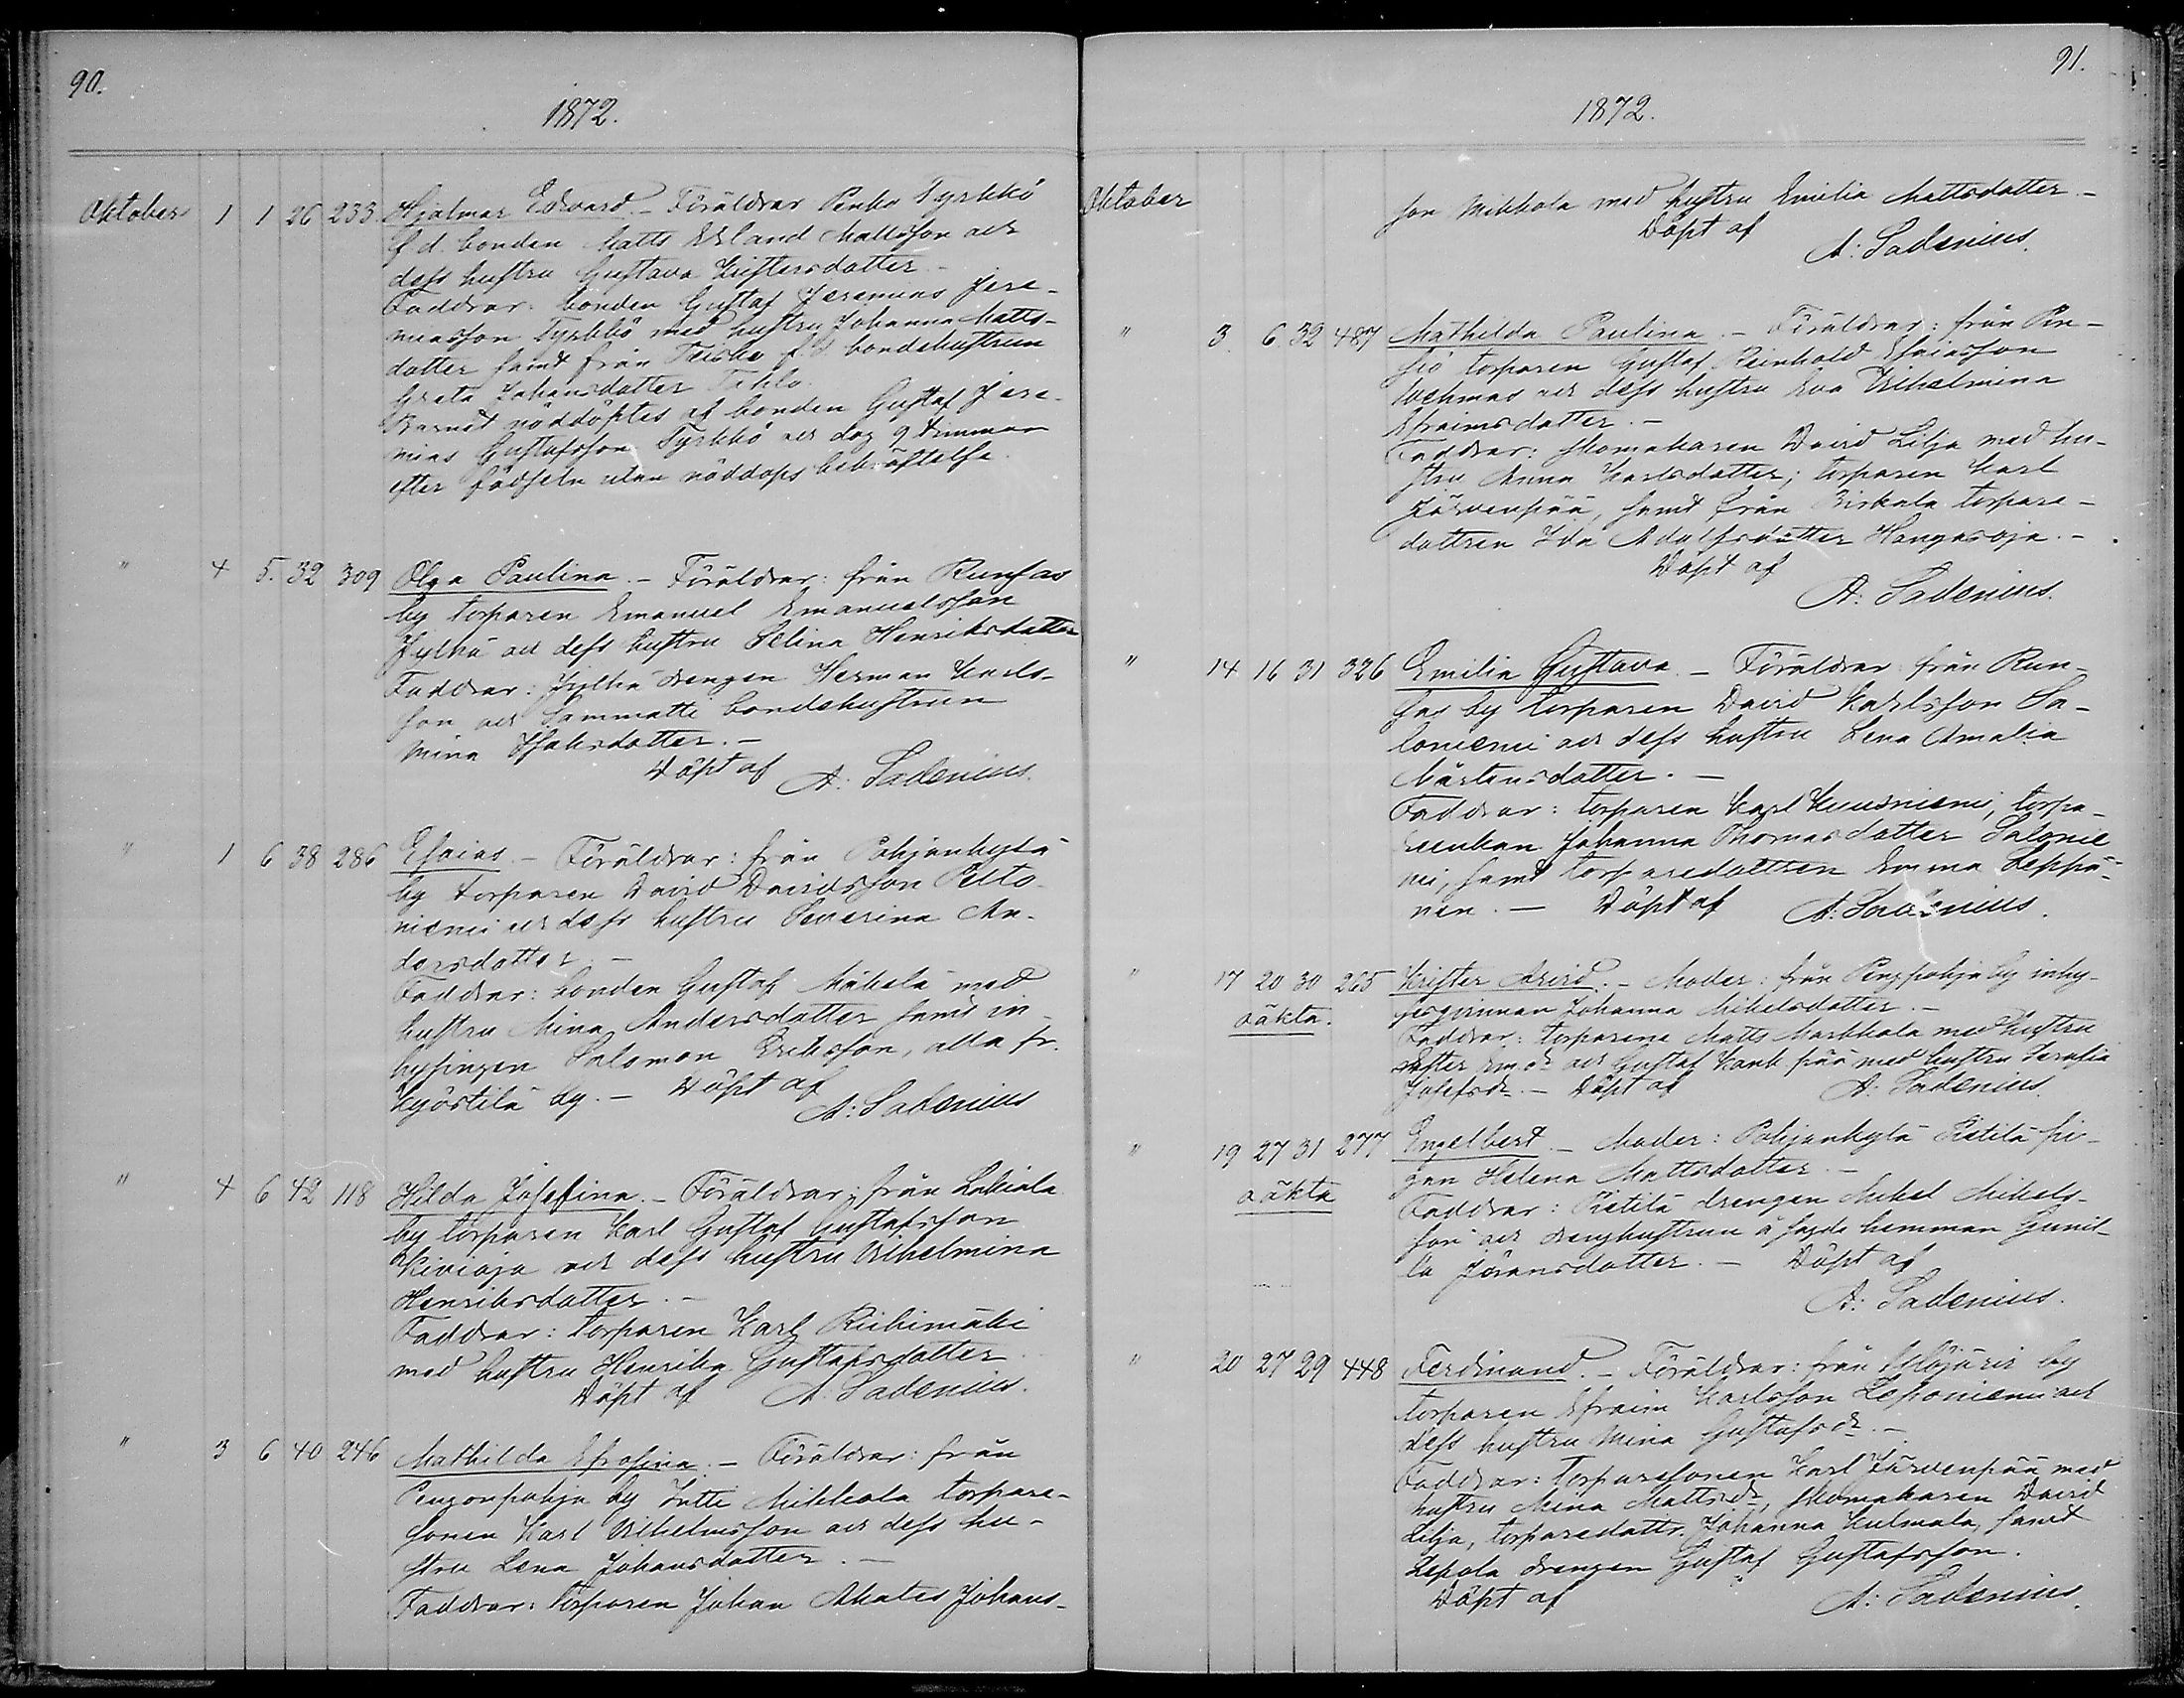 90.
1872.
Oktober 1 1 26 233. Hjalmar Edvard. - Föräldrar Penko Tyrkkö
f.d. bonden Matts Erland Mattsson och
dess hustru Gustava Kristersdotter. -
Faddrar: bonden Gustaf Jeremias Jere-
miasson Tyrkkö med hustru Johanna Matts-
dotter samt från Teisko f.d. bondehustrun
Greta Johansdotter Tahlo.
Barnet nöddöptes af bonden Gustaf Jere-
mias Gustafsson Tyrkkö och dog 9 timmar
efter födseln utan nöddops bekräftelse.
" 4 5. 32 309 Olga Paulina. - Föräldrar: från Runsas
by torparen Emanuel Emanuelsson
Jylhä och dess hustru Selina Henriksdotter
Faddrar: Jylhä drengen Herman Karls-
son och Sammatti bondehustrun
Mina Isaksdotter. -
Döpt af A: Sadenius.
" 1 6 38 286 Esaias. - Föräldrar: från Pohjankylä
by torparen David Davidsson Pelto-
niemi och dess hustru Severina An-
dersdotter. -
Faddrar: bonden Gustaf Mäkelä med
hustru Mina Andersdotter samt in-
hysingen Salomon Eriksson, alla fr.
Kyöstilä by. - Döpt af
A: Sadenius
" 4 6 42 118 Hilda Josefina. - Föräldrar: från Lakiala
by torparen Karl Gustaf Gustafsson
Kivioja och dess hustru Vilhelmina
Henriksdotter. -
Faddrar: torparen Karl Riihimäki
med hustru Henrika Gustafsdotter.
Döpt af A: Sadenius.
" 3 6 40 246 Mathilda Efrosina. - Föräldrar: från
Penzonpohja by Intti Mikkola torpare-
sonen Karl Vilhelmsson och dess hu-
stru Lena Johansdotter. -
Faddrar: torparen Johan Akates Johans-
91.
1872.
Oktober son Mikkola med hustru Emilia Mattsdotter. -
Döpt af
A: Sadenius.
" 3. 6 32 487 Mathilda Paulina. - Föräldrar: från Pin-
siö torparen Gustaf Reinhold Esaiasson
Wehmas och dess hustru Eva Vilhelmina
Efraimsdotter. -
Faddrar: skomakaren David Lilja med hu-
stru Anna Karlsdotter; torparen Karl
Järvenpää, samt från Birkala torpare-
dottren Ida Adolfsdotter Hangasoja. -
Döpt af
A: Sadenius.
" 14 16 31 326 Emilia Gustava. - Föräldrar: från Run-
sas by torparen David Karlsson Sa-
loniemi och dess hustru Lena Amalia
Mårtensdotter. -
Faddrar: torparen Karl Kuusniemi, torpa-
reenkan Johanna Thomasdotter Salonie-
mi, samt torparedottren Emma Leppä-
nen. - Döpt af A: Sadenius.
" 17 20 30 265 Krister Arvid. - Moder: från Penzpohja by inhy-
oäkta. sesqvinnan Johanna Mikelsdotter. -
Faddrar: torparene Matts Markkola med hustru
Ester Em.dr och Gustaf Kankpää med hustru Serafia
Josefsdr. - Döpt af A: Sadenius.
" 19 27 31 277 Engelbert. - Moder: Pohjankylä Pietilä pi-
oäkta gan Helena Mattsdotter. -
Faddrar: Pietilä drengen Mikel Mikels-
son och drenghustrun å sagde hemman Gunil-
la Jöransdotter. - Döpt af
A: Sadenius.
" 20 27 29 448 Ferdinand. - Föräldrar: från Ylöjärvi by
torparen Efraim Karlsson Leponiemi och
dess hustru Mina Gustafsdr. -
Faddrar: torparesonen Karl Järvenpää med
hustru Mina Mattsdr, skomakaren David
Lilja, torparedottr. Johanna Kulmala, samt
Lepola drengen Gustaf Gustafsson.
Döpt af A: Sadenius.